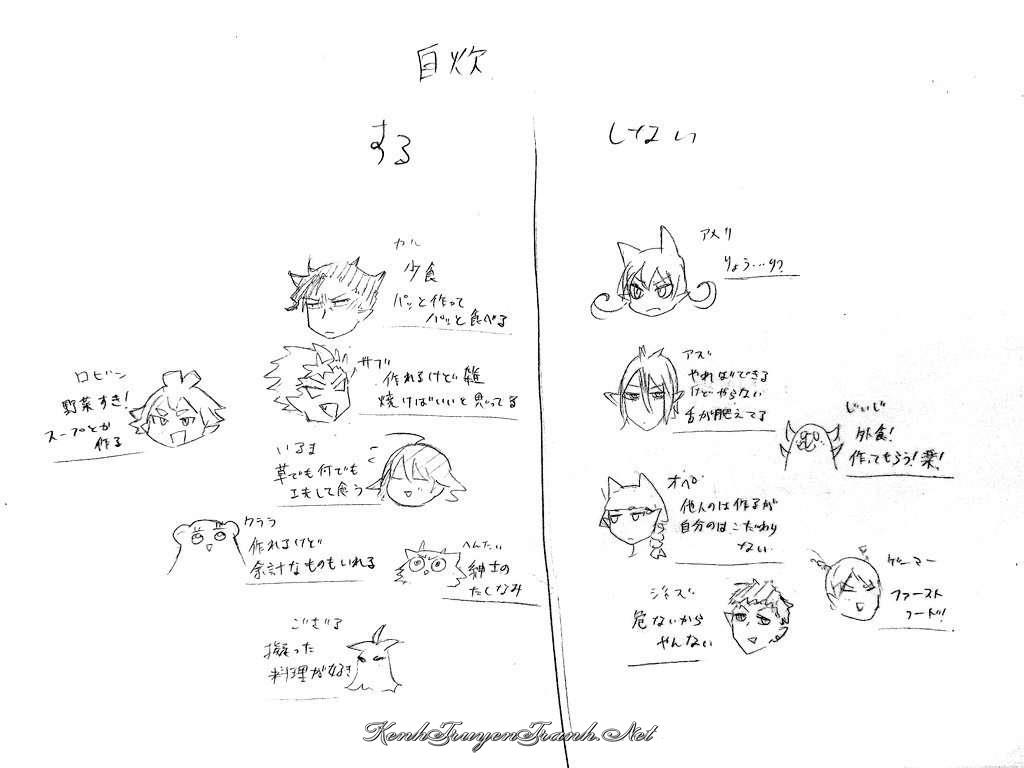 自炊
する
しない
カル
少食
パッと作って
パッと食べる
サブ
作れるけど雑
焼けばいいと思ってる
ロビン
野菜すき!
スープとか
作る
いるま
草でも何でも
工夫して食う
クララ
作れるけど
余計なものもいれる
へんたい
紳士の
たしなみ
ござる
凝った
料理が好き
アメリ
りょう…り?
アズ
やればできる
けどやらない
舌が肥えてる
じぃじ
外食!
作ってもらう!楽!
オペラ
他人のは作るが
自分のはこだわり
ない
ゲーマー
ファースト
フード!
ジャズ
危ないから
やんない
KenhTruyenTranh.Net